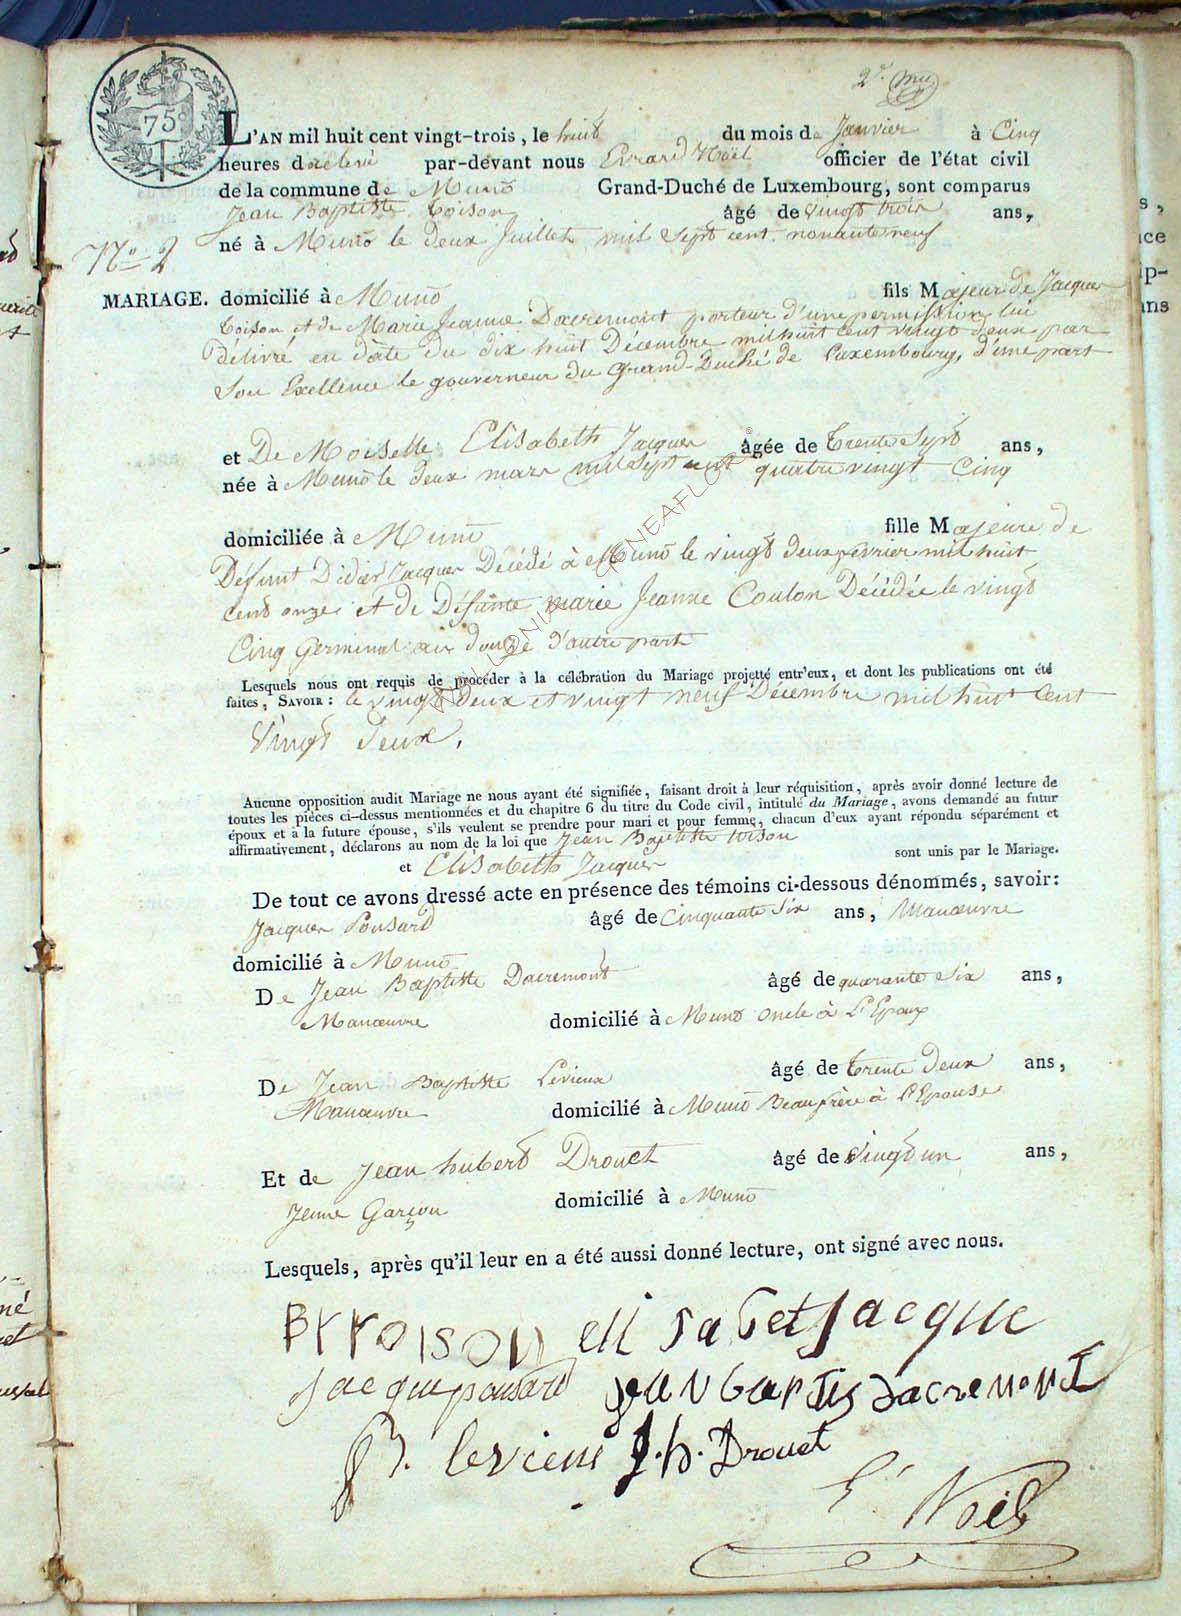 2e. Mu
75c
L'AN mil huit cent vingt-trois, le huit du mois de Janvier à Cinq
heures de relevé par-devant nous Evrard Noël officier de l'état civil
de la commune de Muno Grand-Duché de Luxembourg, sont comparus
Jean Baptiste Toison âgé de vingt trois ans,
né à Muno le deux Juillet mil Sept cent nonante neuf
No 2
MARIAGE. domicilié à Muno fils Majeur de Jacques
Toison et de Marie Jeanne Dacremont porteur d'une permission lui
Délivré en date du dix huit Décembre mil huit cent vingt deux par
Son Exellence le gouverneur du Grand-Duché de Luxembourg, d'une part
et De Moiselle Elisabeth Jacques âgée de Trente Sept ans,
née à Muno le deux mars mil Sept cent quatre vingt Cinq
domiciliée à Muno fille Majeure de
Défunt Didier Jacques Décédé à Muno le vingt deux février mil huit
cent onze et de Défunte marie Jeanne Coulon Décédée le vingt
Cinq Germinal an douze d'autre part
Lesquels nous ont requis de procéder à la célébration du Mariage projetté entr'eux, et dont les publications ont été
faites, SAVOIR : le vingt deux et vingt neuf Décembre mil huit cent
Vingt deux,
Aucune opposition audit Mariage ne nous ayant été signifiée, faisant droit à leur réquisition, après avoir donné lecture de
toutes les pièces ci-dessus mentionnées et du chapitre 6 du titre du Code civil, intitulé du Mariage, avons demandé au futur
époux et à la future épouse, s'ils veulent se prendre pour mari et pour femme, chacun d'eux ayant répondu séparément et
affirmativement, déclarons au nom de la loi que Jean Baptiste toison
et Elisabeth Jacques sont unis par le Mariage.
De tout ce avons dressé acte en présence des témoins ci-dessous dénommés, savoir :
Jacques Ponsard âgé de Cinquante Six ans, Manœuvre
domicilié à Muno
De Jean Baptiste Dacremont âgé de quarante Six ans,
Manœuvre domicilié à Muno oncle à l'Epoux
De Jean Baptiste Levieux âgé de Trente deux ans,
Manœuvre domicilié à Muno Beaufrère à l'Epouse
Et de Jean hubert Drouet âgé de Vingt un ans,
Jeune Garçon domicilié à Muno
Lesquels, après qu'il leur en a été aussi donné lecture, ont signé avec nous.
elisabet Jacque
Jacque ponsard Jean baptis dacremont
J.h. Drouet
E Noël